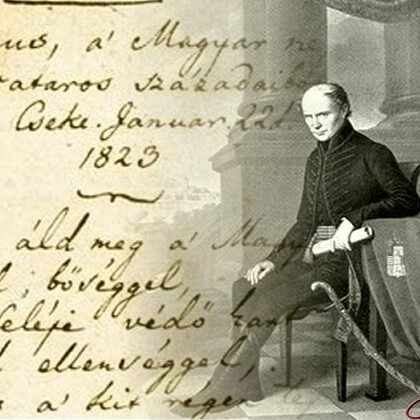 a' Magyar
zataros századaib
Cseke. Januar. 22d.
1823
áld meg a' Magy
bőséggel,
védő kart
ellenséggel,
a' kit régen